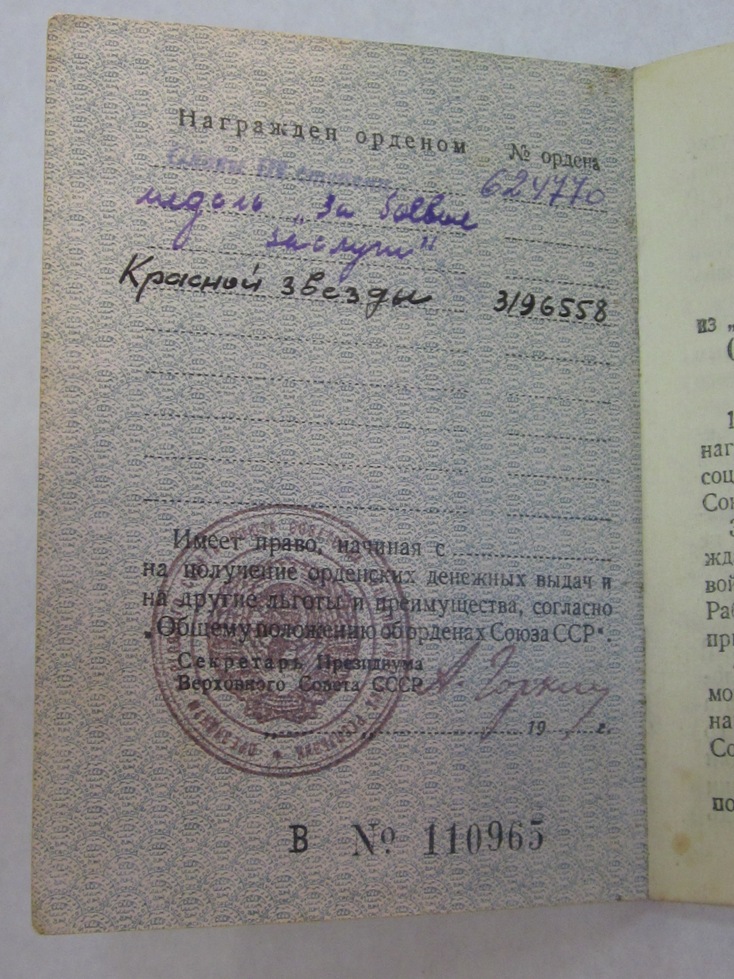 Награжден орденом № ордена
Славы III степени 624770
медаль „За боевые
заслуги"
Красной звезды 3196558
Имеет право, начиная с
на получение орденских денежных выдач и
на другие льготы и преимущества, согласно
„Общему положению об орденах Союза ССР".
Секретарь Президиума
Верховного Совета СССР А. Горкин
19 г.
В № 110965
из „
1
наг
соц
Сою
З
жд
вой
Раб
при
мо
на
Со
по